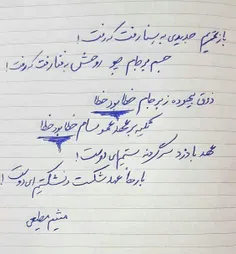 باز تحریم جدیدی به سپنا رفت که رفت!
جسم بر جام چو روحش به فنا رفت که رفت!
ذوق بیهوده زبرجام خطا بود خطا
تکیه بر عهد عمو سام خطا بود خطا
عهد با دزد سر گردنه ستیم ای دوست!
بارها عهد شکست و نشکستیم ای دوست!
میثم مطیعی